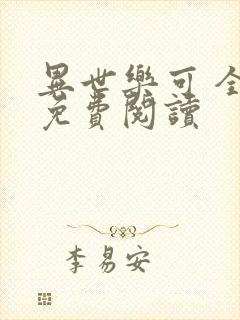 異世樂可 全
免費閱讀
李易安